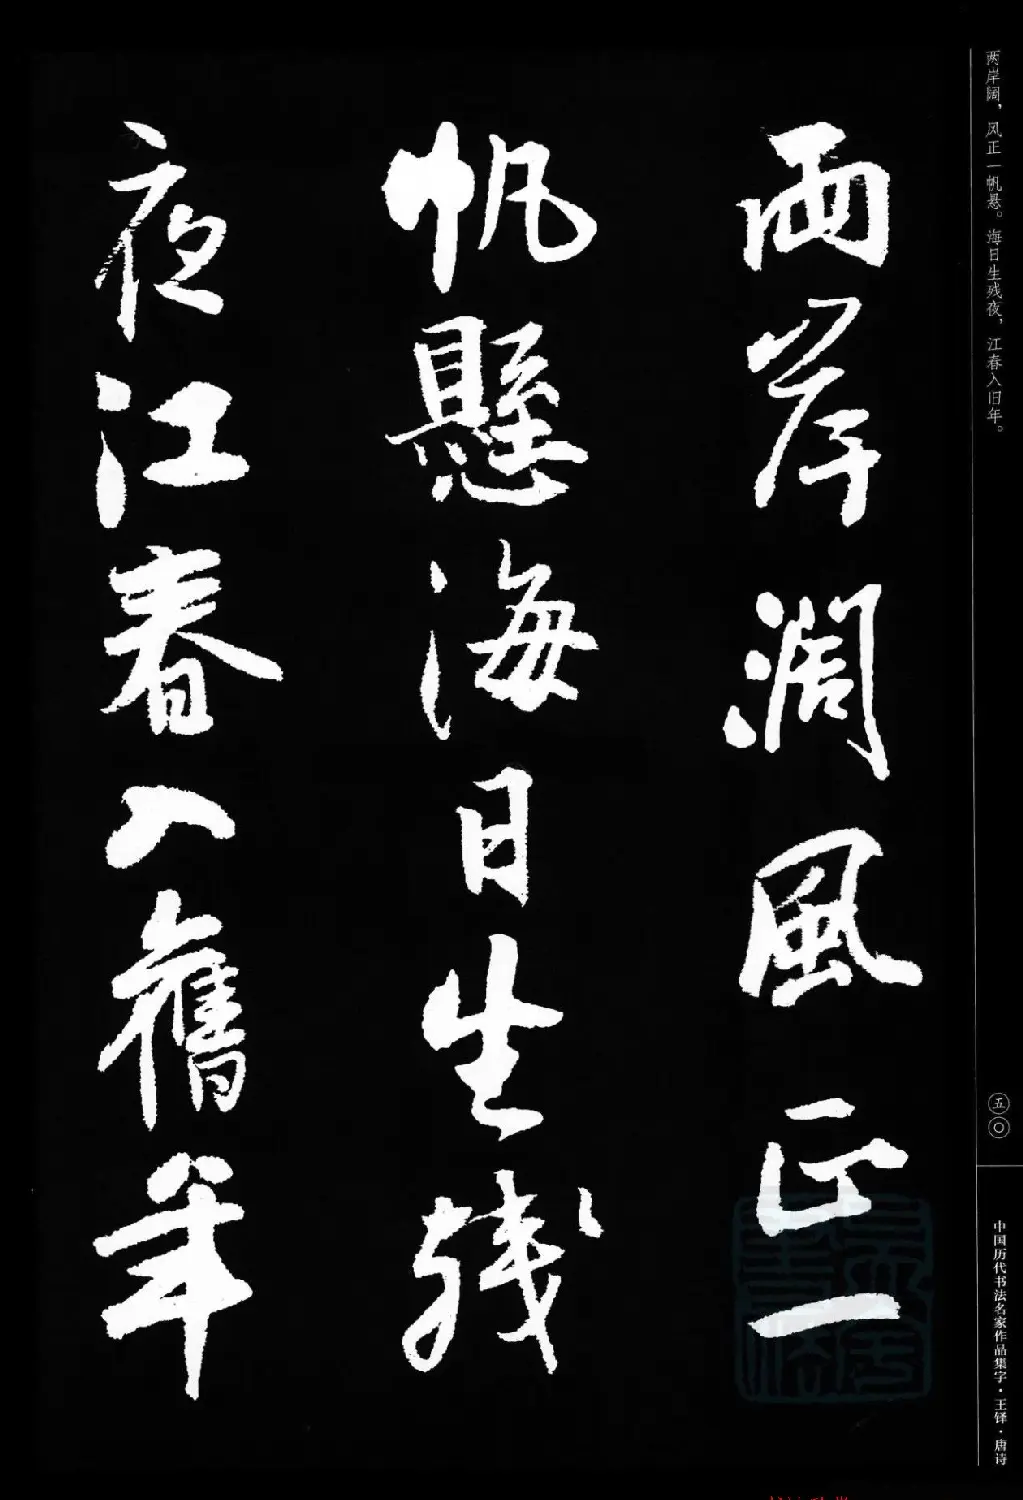 两岸阔，风正一帆悬。海日生残夜，江春入旧年。
兩岸闊風正一
帆懸海日生殘
夜江春入舊年
五〇
中国历代书法名家作品集字·王铎·唐诗